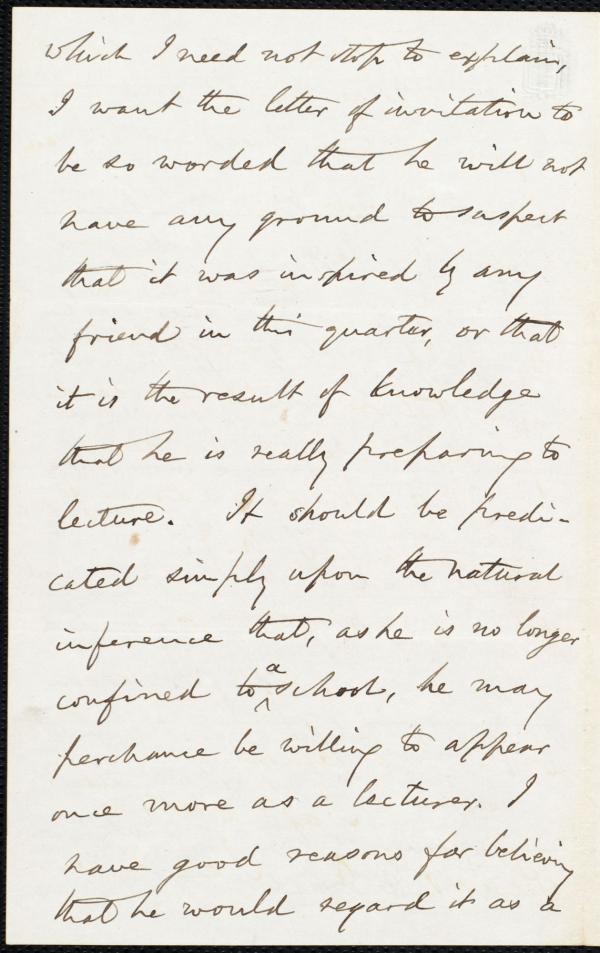 which I need not stop to explain,
I want the letter of invitation to
be so worded that he will not
have any ground to suspect
that it was inspired by any
friend in this quarter, or that
it is the result of knowledge
that he is really preparing to
lecture. It should be predi-
cated simply upon the natural
inference that, as he is no longer
confined to a school, he may
perchance be willing to appear
once more as a lecturer. I
have good reasons for believing
that he would regard it as a